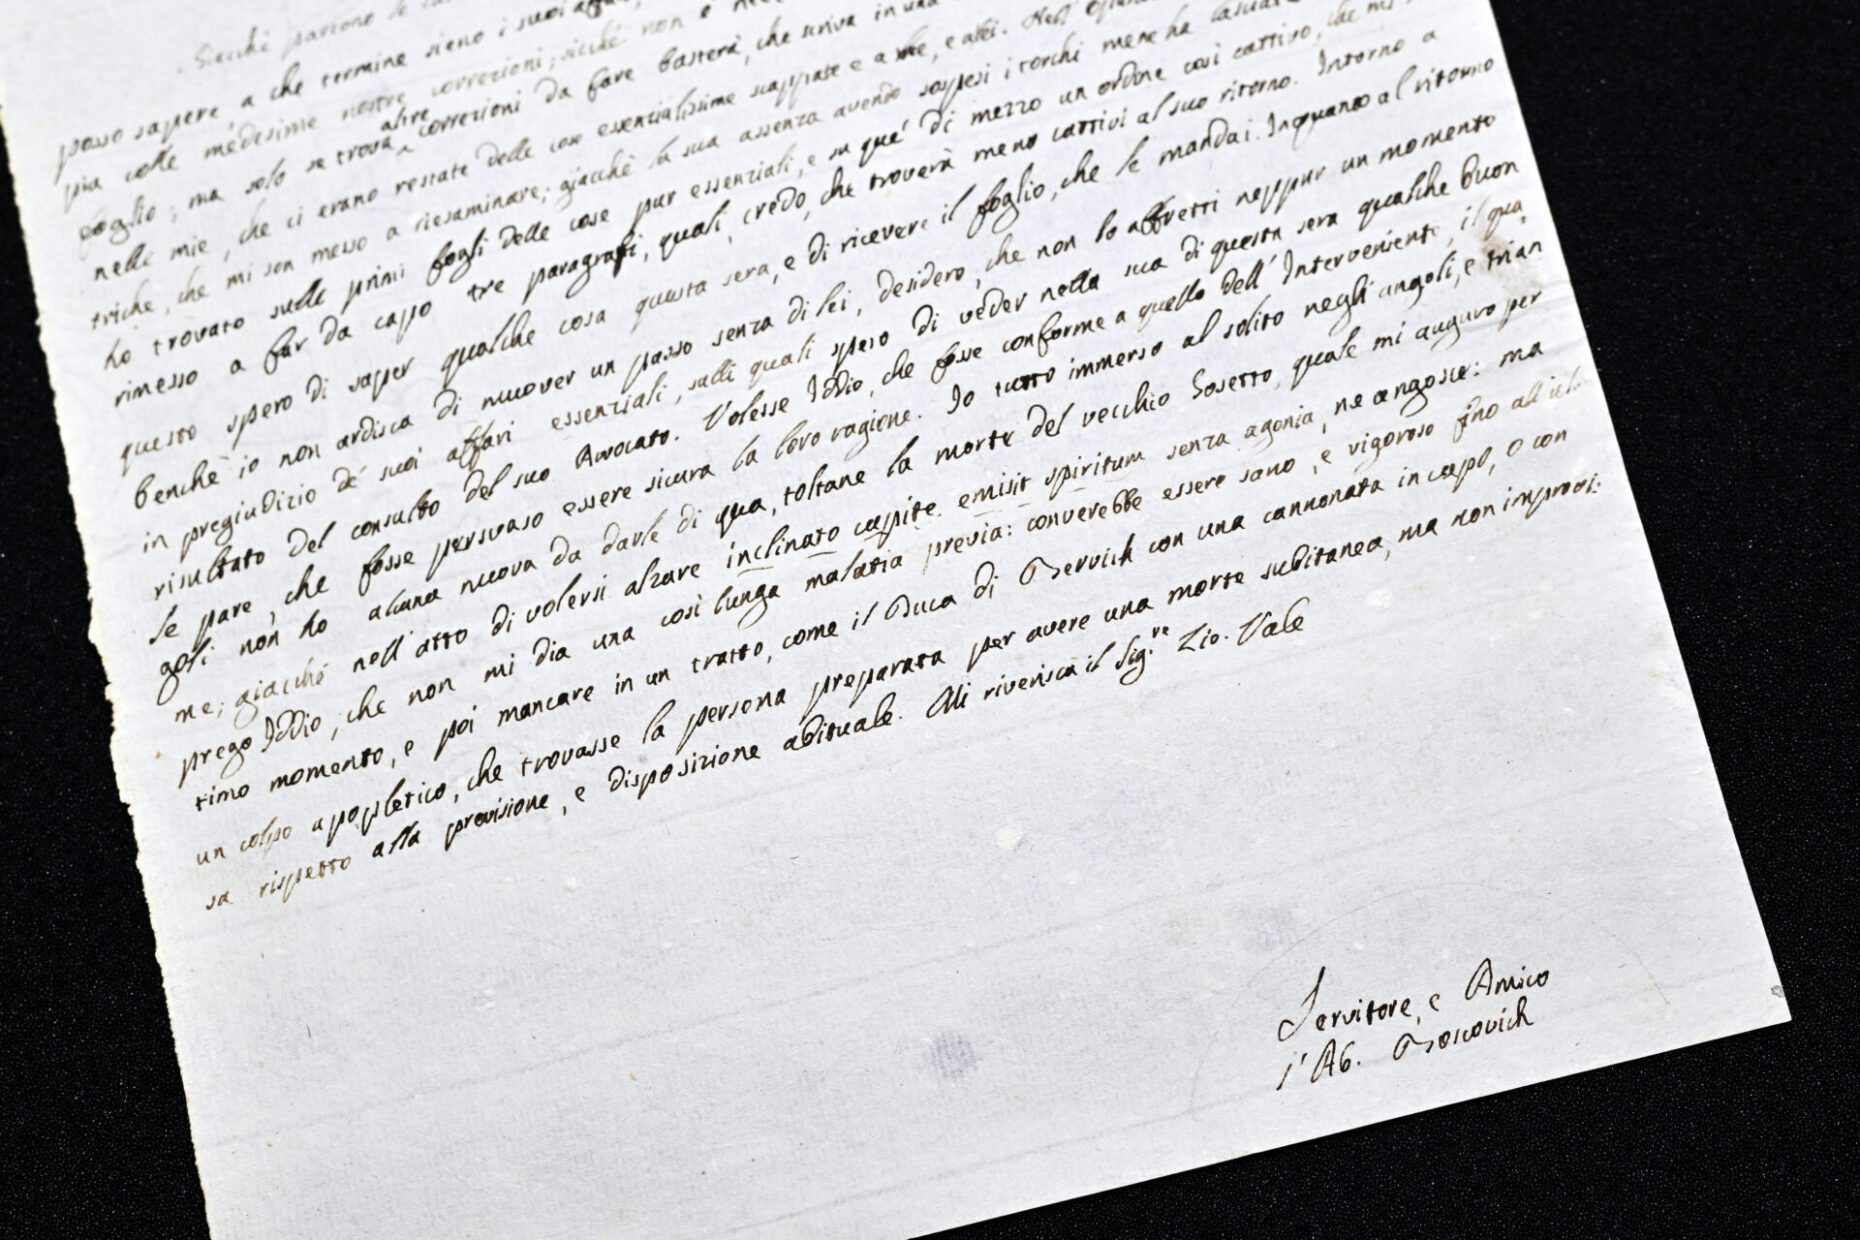 Giacchè partono le
posso sapere, a che termine sieno i suoi affari,
ma colle medesime nostre correzioni; sicchè non è
foglio; ma solo se trova altre correzioni da fare basterà, che scriva in una
nelle mie, che ci erano restate delle cose essenzialissime scappate e a me, e a lei. Nell'
triche, che mi son messo a riesaminare; giacchè la sua assenza avendo sospesi i torchi me ne ha
ho trovato sulli primi fogli delle cose pur essenziali, e su que' di mezzo un ordine così cattivo, che mi
rimesso a far da capo tre paragrafi, quali, credo, che troverà meno cattivi al suo ritorno. Intorno a
questo spero di saper qualche cosa questa sera, e di ricevere il foglio, che le mandai. In quanto al ritorno
benchè io non ardisca di muover un passo senza di lei, desidero, che non lo affretti neppur un momento
in pregiudizio de' suoi affari essenziali, sulli quali spero di veder nella sua di questa sera qualche buon
risultato del consulto del suo Avvocato. Volesse Iddio, che fosse conforme a quello dell' Interveniente, il qua
le pare, che fosse persuaso essere sicura la loro ragione. Io tutto immerso al solito negli angoli, e trian
goli non ho alcuna nuova da darle di qua, toltane la morte del vecchio Sosetto, quale mi auguro per
me; giacchè nell' atto di volersi alzare inclinato capite emisit spiritum senza agonia, ne angosce: ma
prego Iddio, che non mi dia una così lunga malatia previa: converebbe essere sano, e vigoroso fino all'ul
timo momento, e poi mancare in un tratto, come il Duca di Bervich con una cannonata in capo, o con
un colpo apopletico, che trovasse la persona preparata per avere una morte subitanea, ma non improvi:
sa rispetto alla previsione, e disposizione abituale. Mi riverisca il Sig.re Zio. Vale
Servitore, e Amico
l' Ab. Boscovich